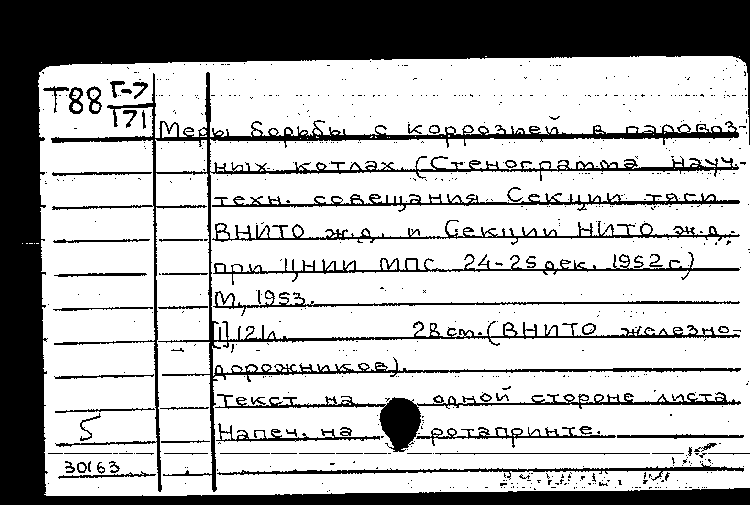 Т88 Г-7
171
Меры борьбы с коррозией в паровоз-
ных котлах. (Стенограмма науч.-
техн. совещания Секции тяги
ВНИТО ж.д. и Секции НИТО ж.д.
при ЦНИИ МПС 24-25 дек. 1952 г.)
М., 1953.
[1], 121 л. 28 см. (ВНИТО железно-
дорожников).
Текст на одной стороне листа.
5 Напеч. на ротапринте.
30163